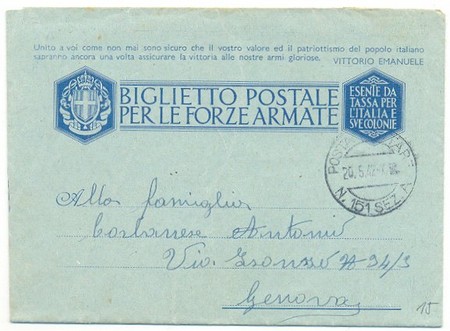 Unito a voi come non mai sono sicuro che il vostro valore ed il patriottismo del popolo italiano
sapranno ancora una volta assicurare la vittoria alle nostre armi gloriose.
VITTORIO EMANUELE
BIGLIETTO POSTALE
PER LE FORZE ARMATE
ESENTE DA
TASSA PER
L'ITALIA E
SVE COLONIE
POSTA
20.5.42
N. 151 SEZ. A
Alla famiglia
Antonio
Via Isonzo N 34/3
Genova
15